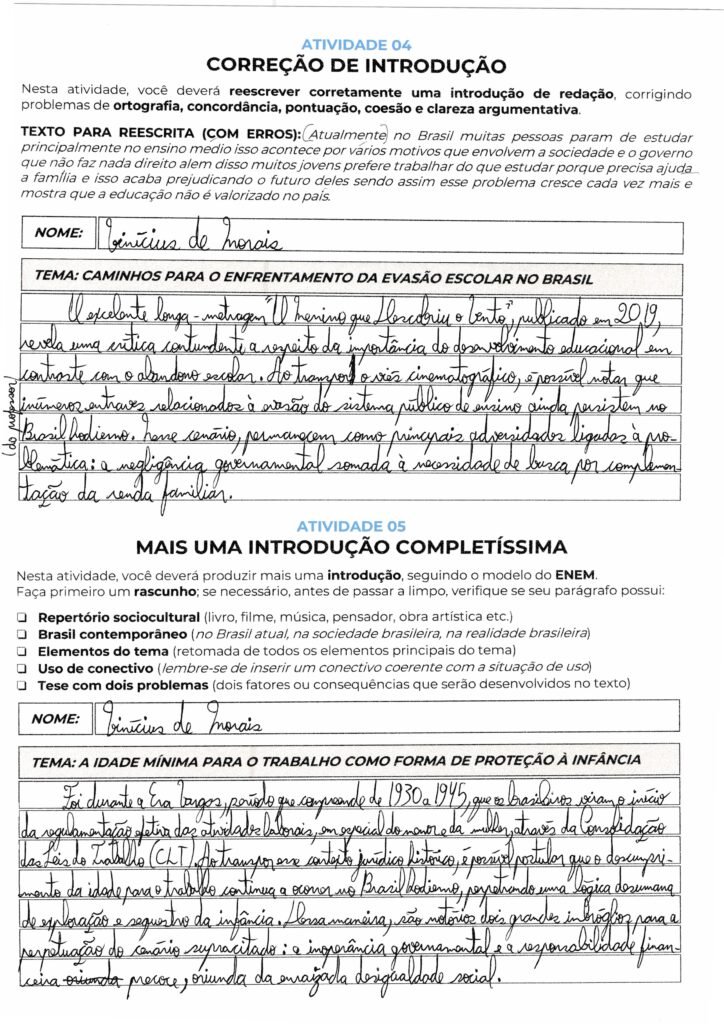 ATIVIDADE 04
CORREÇÃO DE INTRODUÇÃO
Nesta atividade, você deverá reescrever corretamente uma introdução de redação, corrigindo
problemas de ortografia, concordância, pontuação, coesão e clareza argumentativa.
TEXTO PARA REESCRITA (COM ERROS): (Atualmente) no Brasil muitas pessoas param de estudar
principalmente no ensino médio isso acontece por vários motivos que envolvem a sociedade e o governo
que não faz nada direito alem disso muitos jovens prefere trabalhar do que estudar porque precisa ajuda
a família e isso acaba prejudicando o futuro deles sendo assim esse problema cresce cada vez mais e
mostra que a educação não é valorizado no país.
NOME: Vinícius de Morais
TEMA: CAMINHOS PARA O ENFRENTAMENTO DA EVASÃO ESCOLAR NO BRASIL
O excelente longa-metragem "O Menino que Descobriu o Vento", publicado em 2019,
revela uma crítica contundente a respeito da importância do desenvolvimento educacional em
contraste com o abandono escolar. Ao transpor o viés cinematográfico, é possível notar que
inúmeros entraves relacionados à evasão do sistema público de ensino ainda persistem no
Brasil hodierno. Nesse cenário, permanecem como principais adversidades ligadas à pro-
blemática: a negligência governamental somada à necessidade de busca por complemen-
tação da renda familiar.
(do professor)
ATIVIDADE 05
MAIS UMA INTRODUÇÃO COMPLETÍSSIMA
Nesta atividade, você deverá produzir mais uma introdução, seguindo o modelo do ENEM.
Faça primeiro um rascunho; se necessário, antes de passar a limpo, verifique se seu parágrafo possui:
❏ Repertório sociocultural (livro, filme, música, pensador, obra artística etc.)
❏ Brasil contemporâneo (no Brasil atual, na sociedade brasileira, na realidade brasileira)
❏ Elementos do tema (retomada de todos os elementos principais do tema)
❏ Uso de conectivo (lembre-se de inserir um conectivo coerente com a situação de uso)
❏ Tese com dois problemas (dois fatores ou consequências que serão desenvolvidos no texto)
NOME: Vinícius de Morais
TEMA: A IDADE MÍNIMA PARA O TRABALHO COMO FORMA DE PROTEÇÃO À INFÂNCIA
Foi durante a Era Vargas, período que compreende de 1930 a 1945, que os brasileiros viram o início
da regulamentação efetiva das atividades laborais, em especial do menor e da mulher, através da Consolidação
das Leis do Trabalho (CLT). Ao transpor esse contexto jurídico histórico, é possível postular que o descumpri-
mento da idade para o trabalho continua a ocorrer no Brasil hodierno, perpetrando uma lógica desumana
de exploração e sequestro da infância. Dessa maneira, são notórios dois grandes imbróglios para a
perpetuação do cenário supracitado: a inoperância governamental e a responsabilidade finan-
ceira oriunda precoce, oriunda da enraizada desigualdade social.